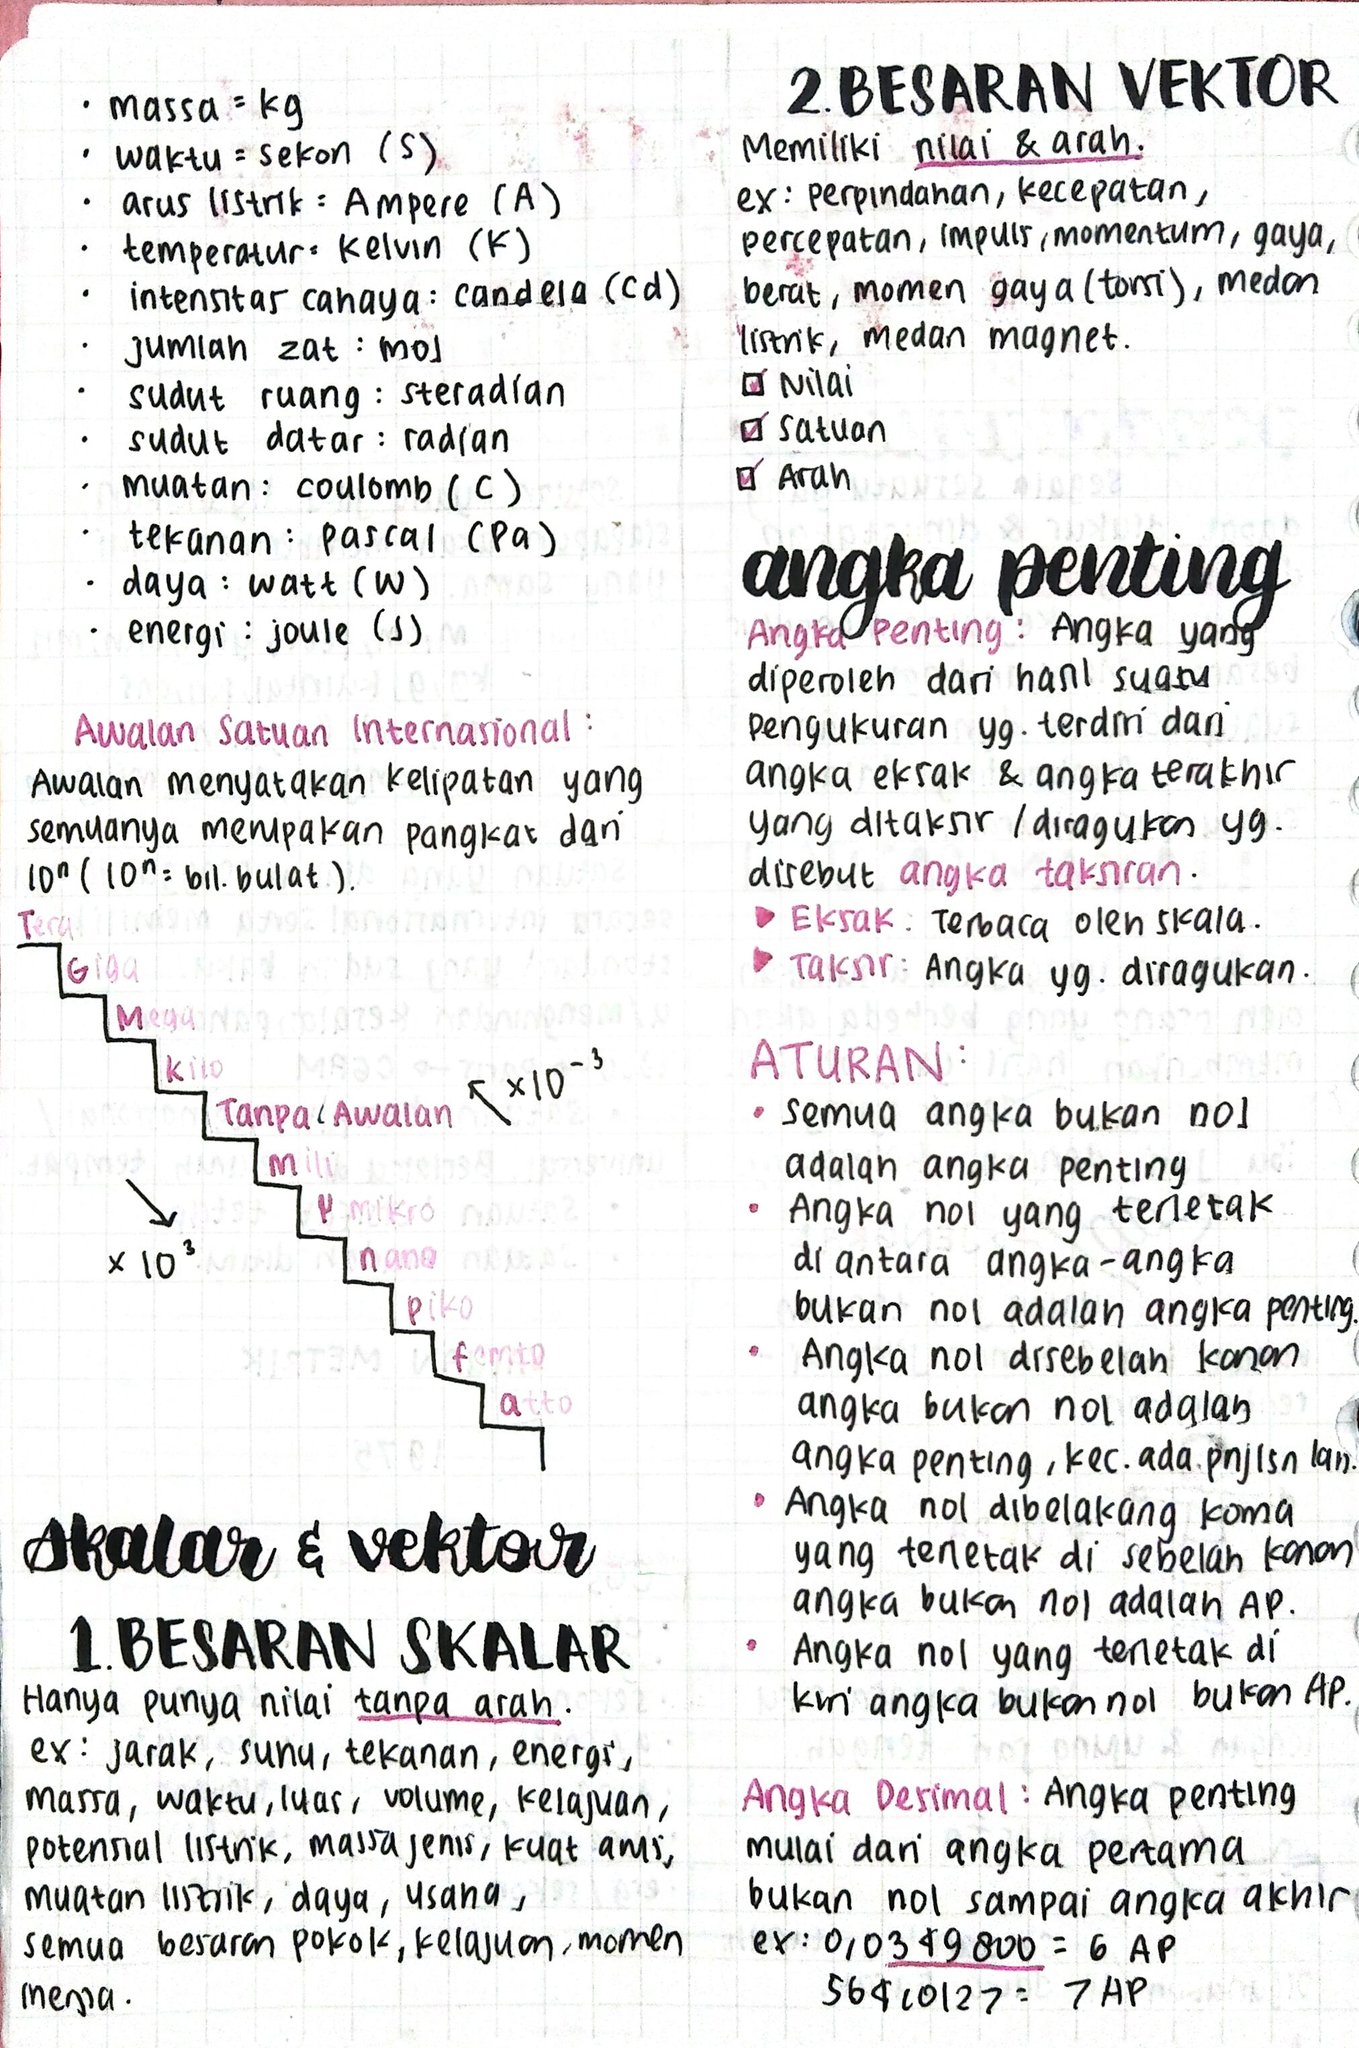 • massa = kg
• waktu = sekon (s)
• arus listrik = Ampere (A)
• temperatur = kelvin (K)
• intensitas cahaya : candela (Cd)
• jumlah zat : mol
• sudut ruang : steradian
• sudut datar : radian
• muatan : coulomb (C)
• tekanan : pascal (Pa)
• daya : watt (W)
• energi : joule (J)
Awalan Satuan Internasional :
Awalan menyatakan kelipatan yang
semuanya merupakan pangkat dari
10ⁿ ( 10ⁿ = bil. bulat ).
Tera
Giga
Mega
kilo
x10⁻³
Tanpa Awalan
mili
μ mikro
x 10³
nano
piko
femto
atto
skalar & vektor
1. BESARAN SKALAR
Hanya punya nilai tanpa arah.
ex : jarak, suhu, tekanan, energi,
massa, waktu, luas, volume, kelajuan,
potensial listrik, massa jenis, kuat arus,
muatan listrik, daya, usaha,
semua besaran pokok, kelajuan, momen
inersia.
2. BESARAN VEKTOR
Memiliki nilai & arah.
ex : perpindahan, kecepatan,
percepatan, impuls, momentum, gaya,
berat, momen gaya (torsi), medan
listrik, medan magnet.
☑ Nilai
☑ Satuan
☑ Arah
angka penting
Angka Penting : Angka yang
diperoleh dari hasil suatu
Pengukuran yg. terdiri dari
angka eksak & angka terakhir
yang ditaksir / diragukan yg.
disebut angka taksiran.
▶ Eksak : Terbaca oleh skala.
▶ Taksir : Angka yg. diragukan.
ATURAN :
• semua angka bukan nol
adalah angka penting
• Angka nol yang terletak
di antara angka-angka
bukan nol adalah angka penting.
• Angka nol disebelah kanan
angka bukan nol adalah
angka penting, kec. ada pnjlsn lan.
• Angka nol dibelakang koma
yang terletak di sebelah kanan
angka bukan nol adalah AP.
• Angka nol yang terletak di
kiri angka bukan nol bukan AP.
Angka Desimal : Angka penting
mulai dari angka pertama
bukan nol sampai angka akhir
ex : 0,0349800 = 6 AP
5640127 = 7 AP